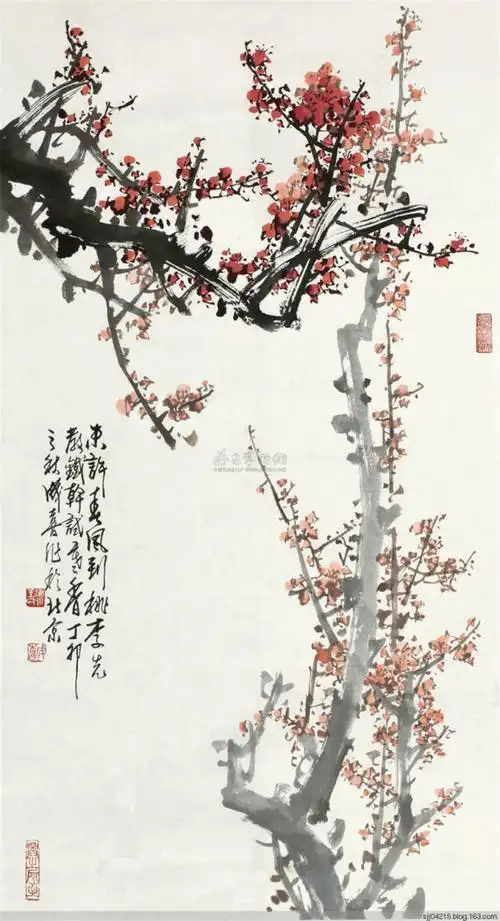 未許春風到桃李先
教鐵幹試寒香丁卯
之秋成喜作於北京
sjj04215.blog.163.com